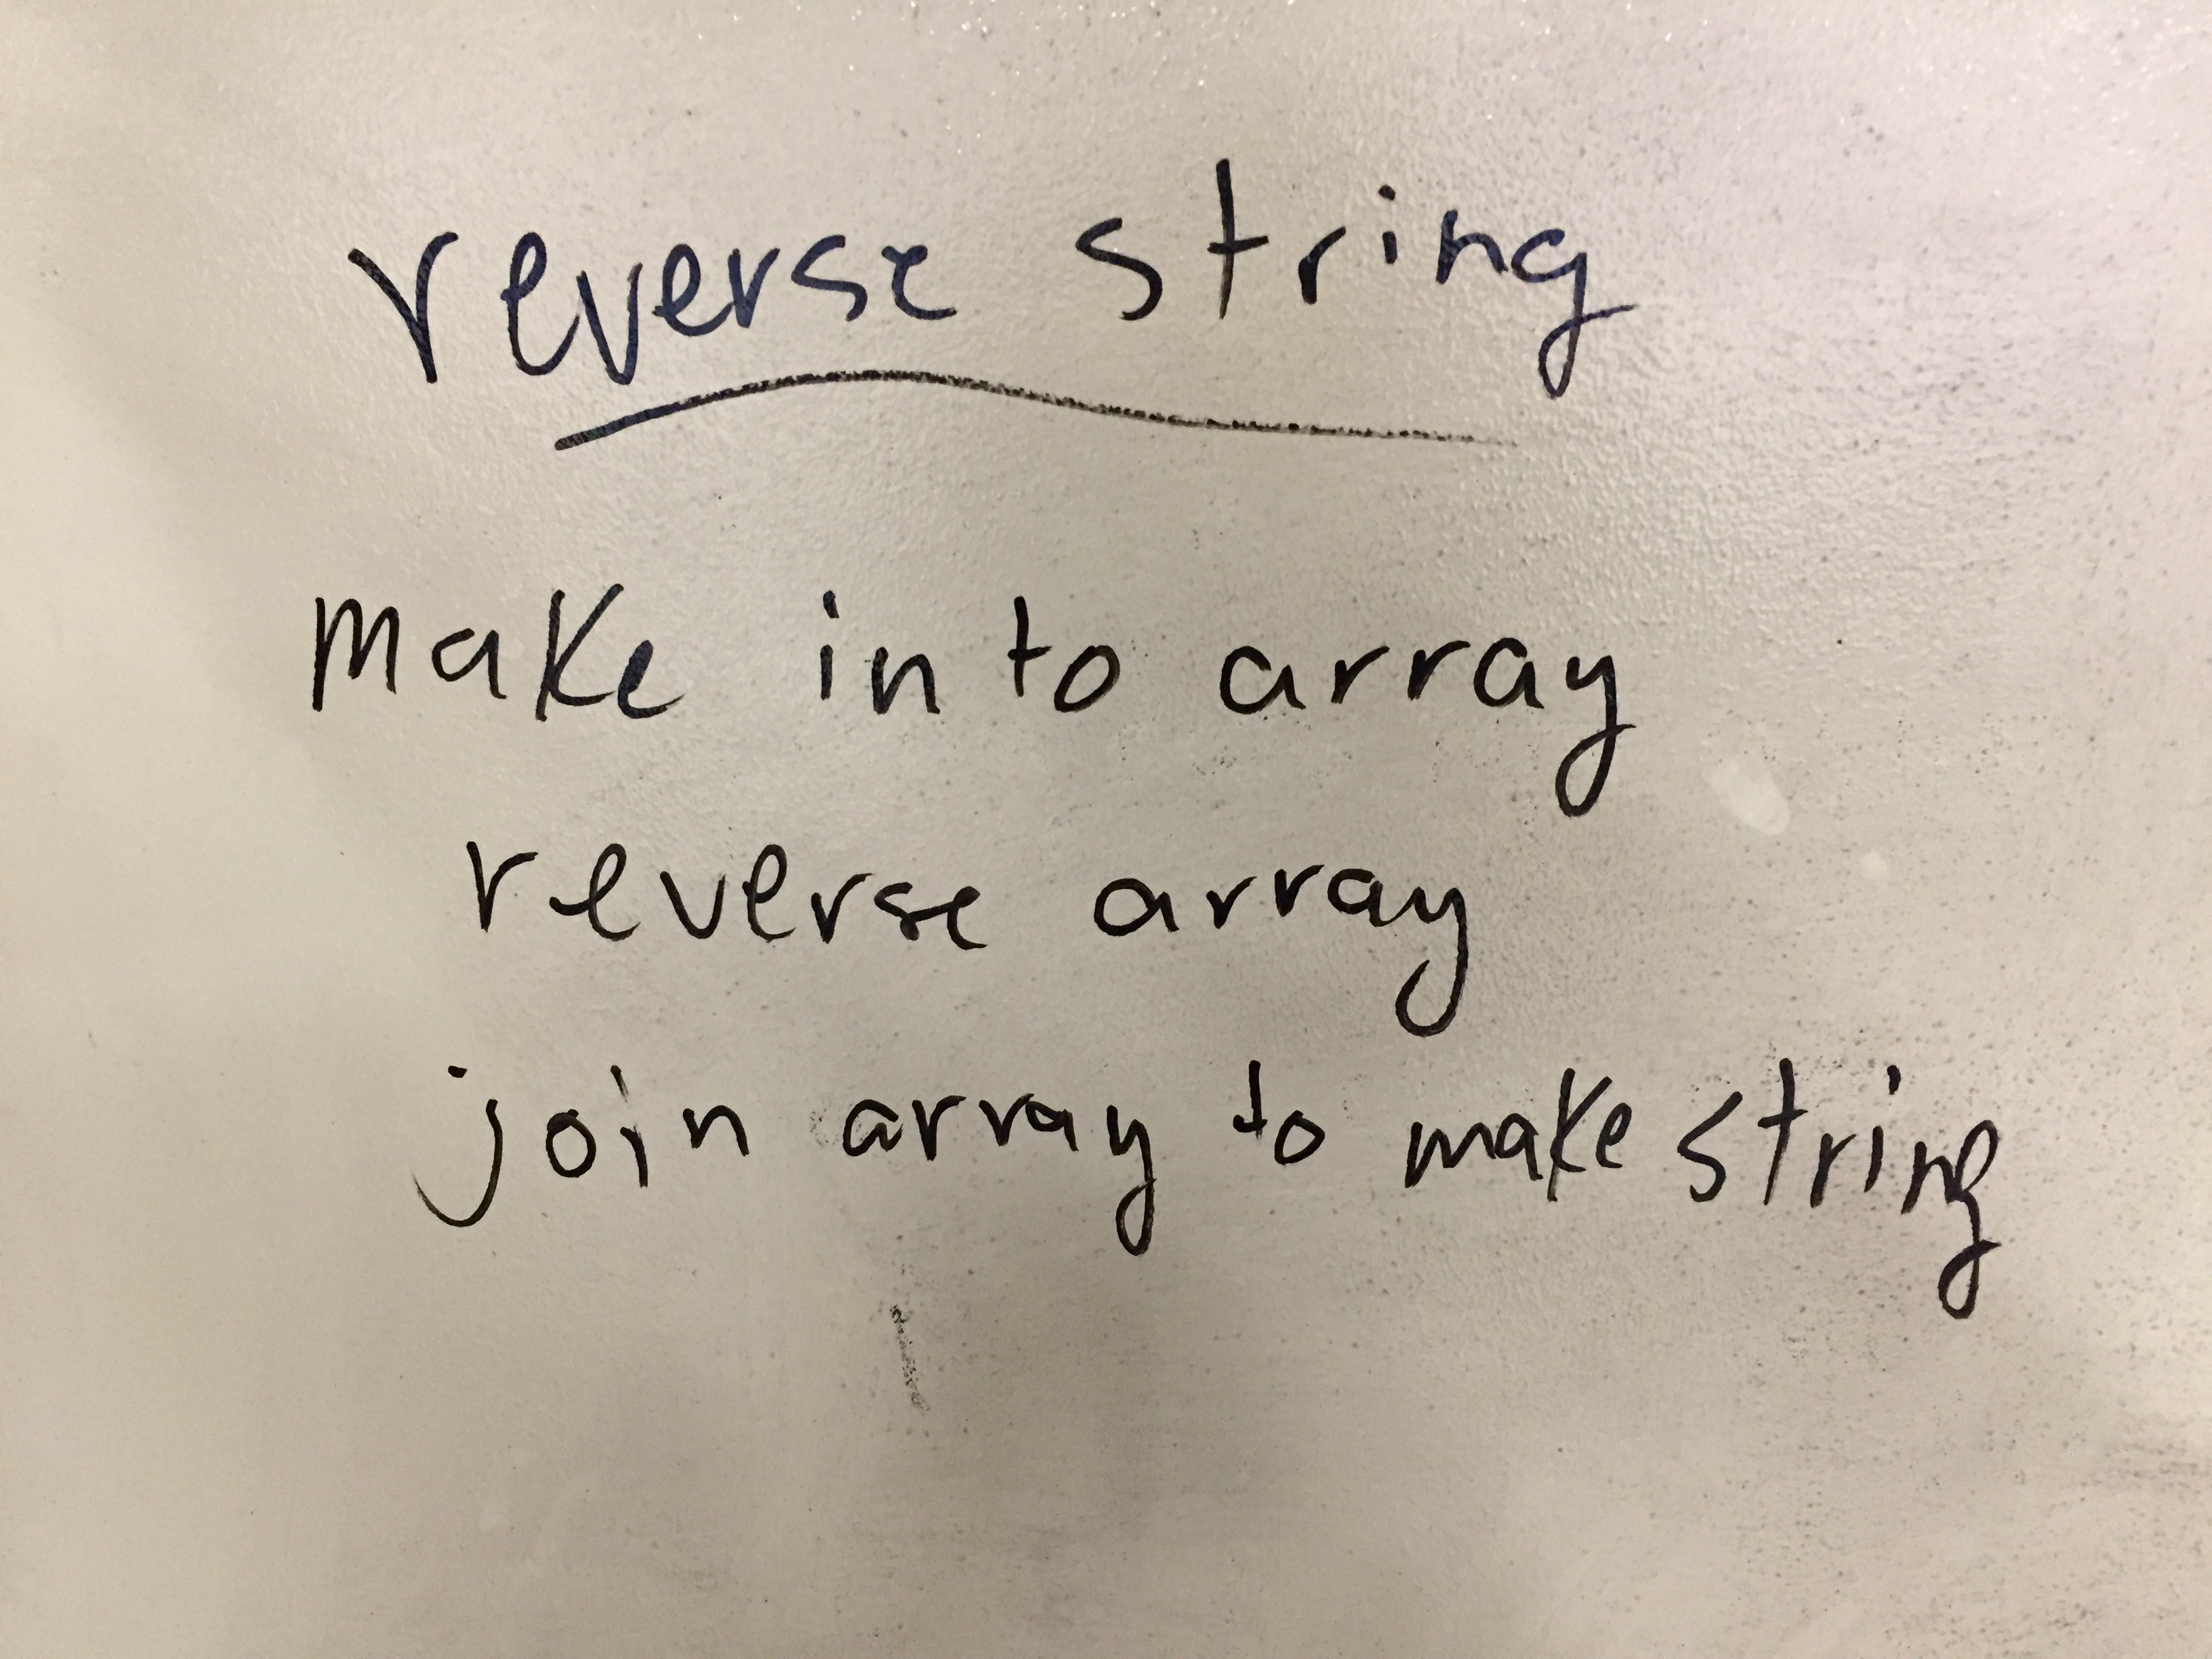 reverse string
make into array
reverse array
join array to make string